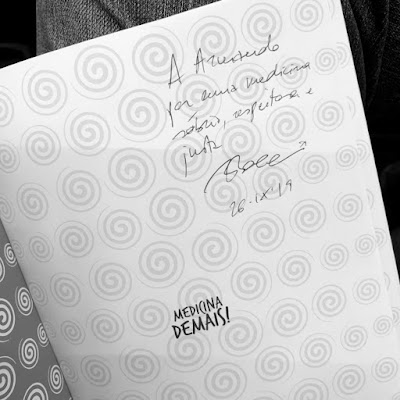 A Armando
por uma medicina
sóbria, respeitosa e
justa
26-IX-19
MEDICINA
DEMAIS!